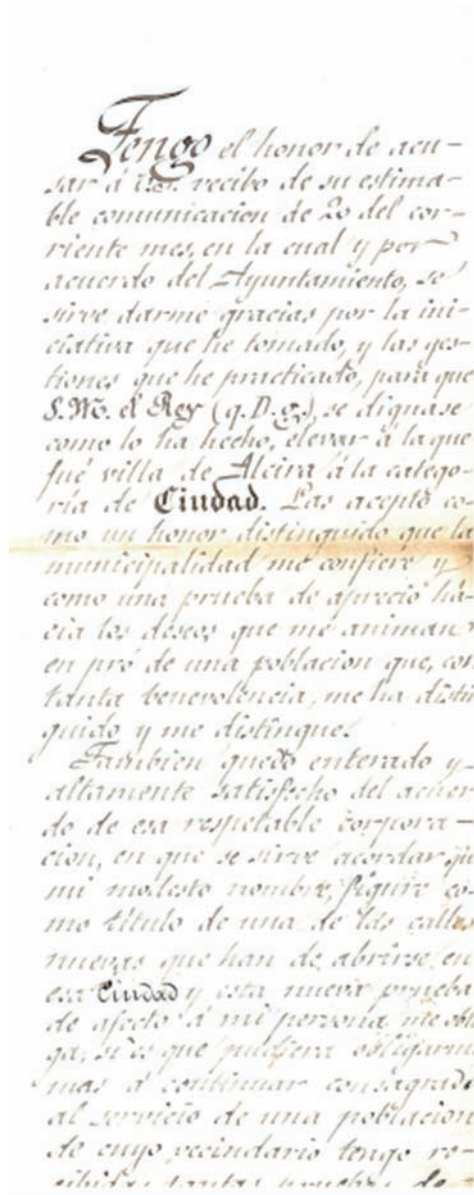 Tengo el honor de acu-
sar á V.S. recibo de su estima-
ble comunicacion de 20 del cor-
riente mes, en la cual y por
acuerdo del Ayuntamiento, se
sirve darme gracias por la ini-
ciativa que he tomado, y las ges-
tiones que he practicado, para que
S.M. el Rey (q.D.g.), se dignase
como lo ha hecho, elevar á la que
fué villa de Alcira á la catego-
ría de Ciudad. Las acepto co-
mo un honor distinguido que la
municipalidad me confiere y
como una prueba de aprecio há-
cia los deseos que me animan
en pró de una poblacion que, con
tanta benevolencia, me ha disti
guido y me distingue.
Tambien quedo enterado y
altamente satisfecho del acuer
do de esa respetable corpora-
cion, en que se sirve acordar qu
mi modesto nombre, figure co-
mo título de una de las calles
nuevas que han de abrirse en
esa Ciudad y esta nueva prueba
de afecto á mi persona me obli
ga, si es que pudiera obligarm
mas á continuar consagrado
al servicio de una poblacion
de cuyo vecindario tengo re-
cibidas tantas pruebas de